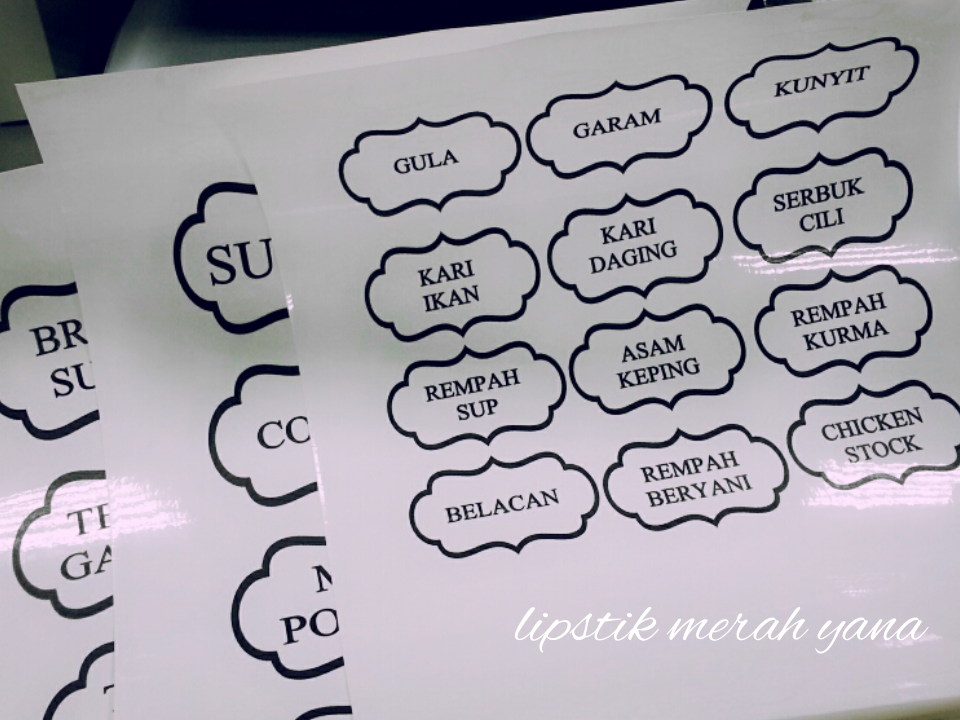 GULA
GARAM
KUNYIT
KARI
IKAN
KARI
DAGING
SERBUK
CILI
REMPAH
SUP
ASAM
KEPING
REMPAH
KURMA
BELACAN
REMPAH
BERYANI
CHICKEN
STOCK
lipstik merah yana